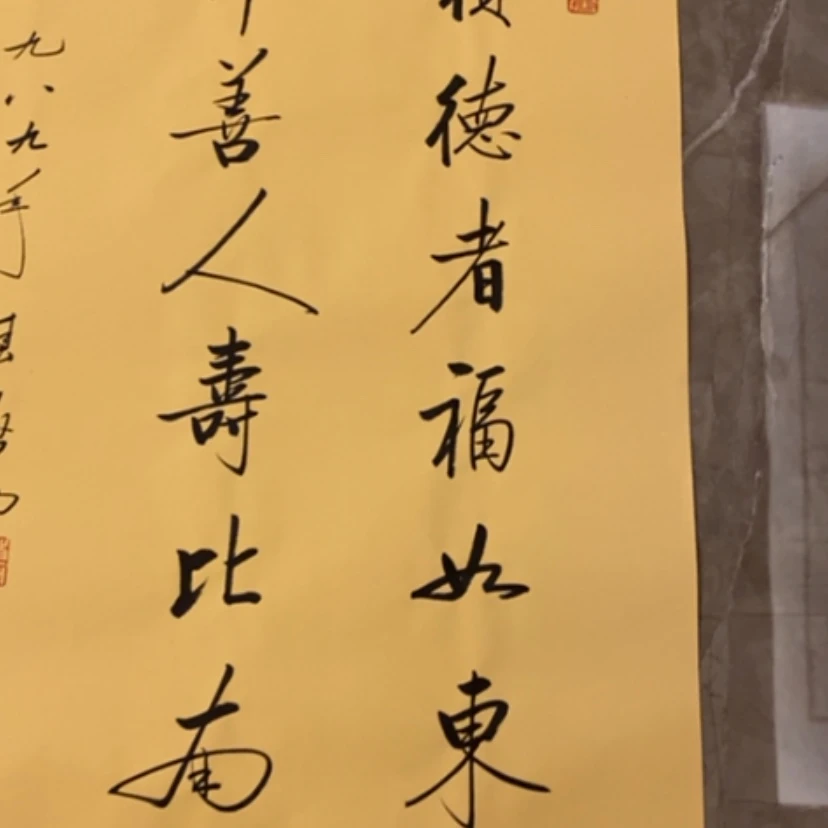 德者福如東
善人壽比南
九八九年